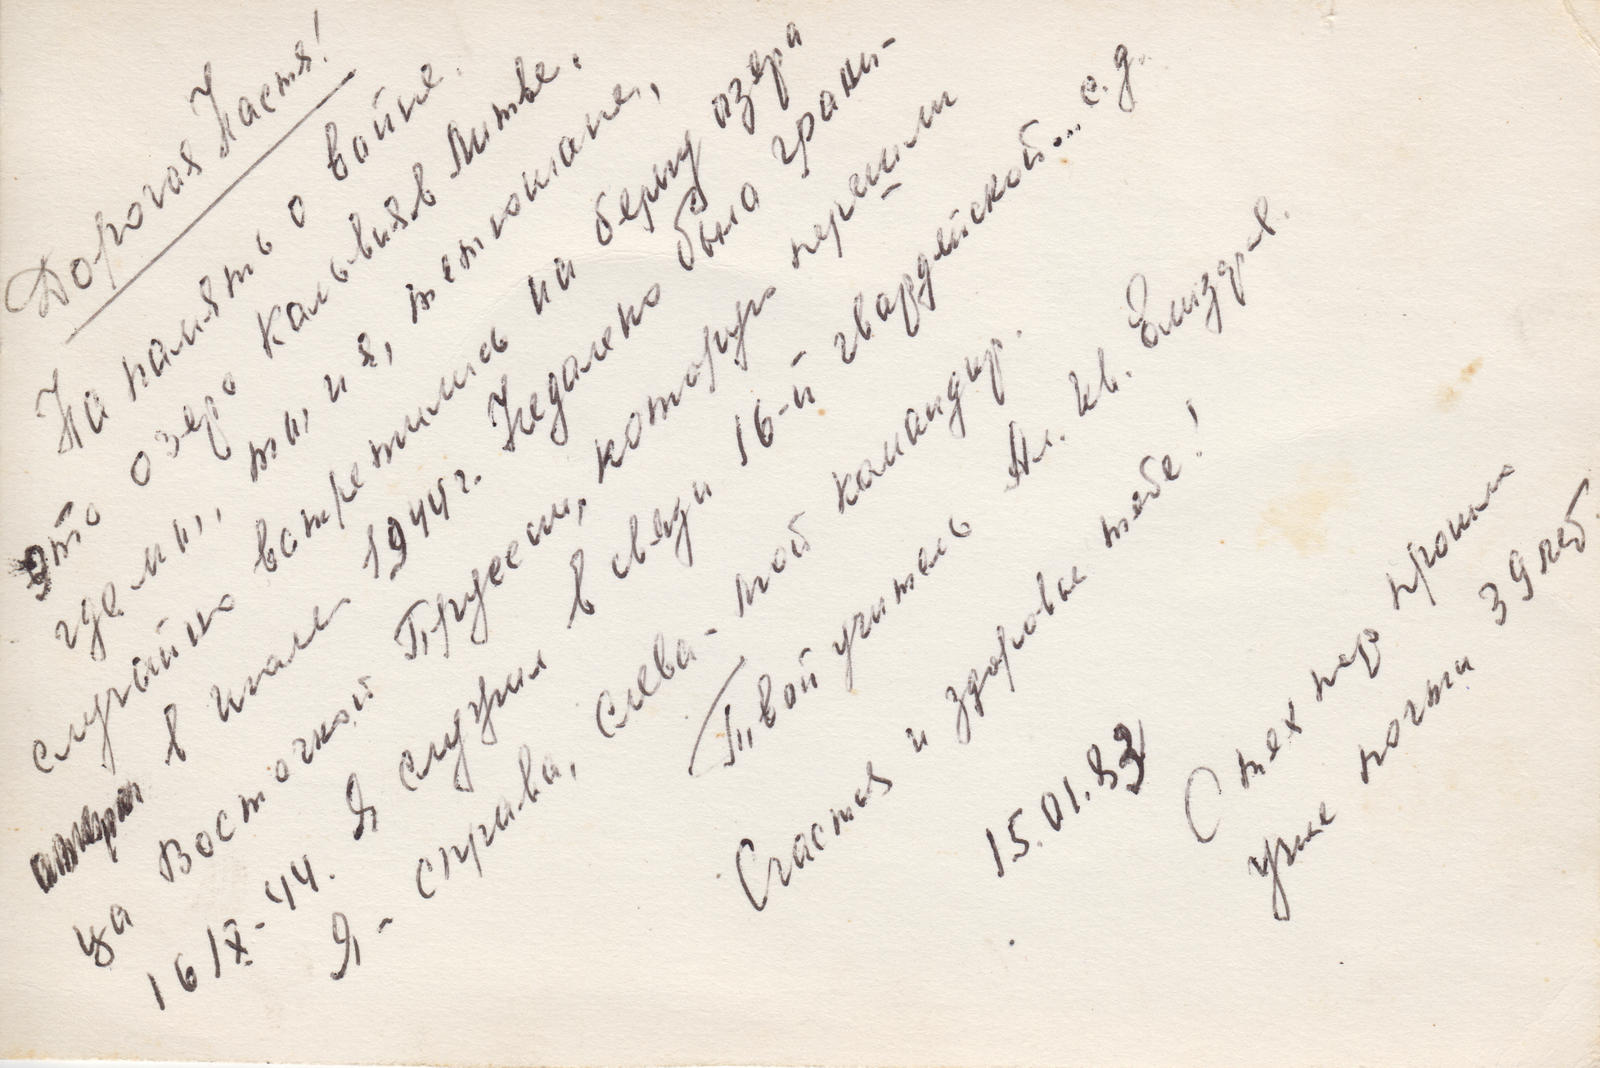 Дорогая Настя!
На память о войне.
Это озеро Кальвия в Литве,
где мы, ты и я, земляки,
случайно встретились на берегу озера
в июле 1944 г. Недалеко была грани-
ца Восточной Пруссии, которую перешли
16 IX-44. Я служил в связи 16-й гвардейской... с.д.
Я - справа, слева - мой командир.
Твой учитель Ал. Ив.
Счастья и здоровья тебе!
15.01.83
С тех пор прошло
уже почти 39 лет.